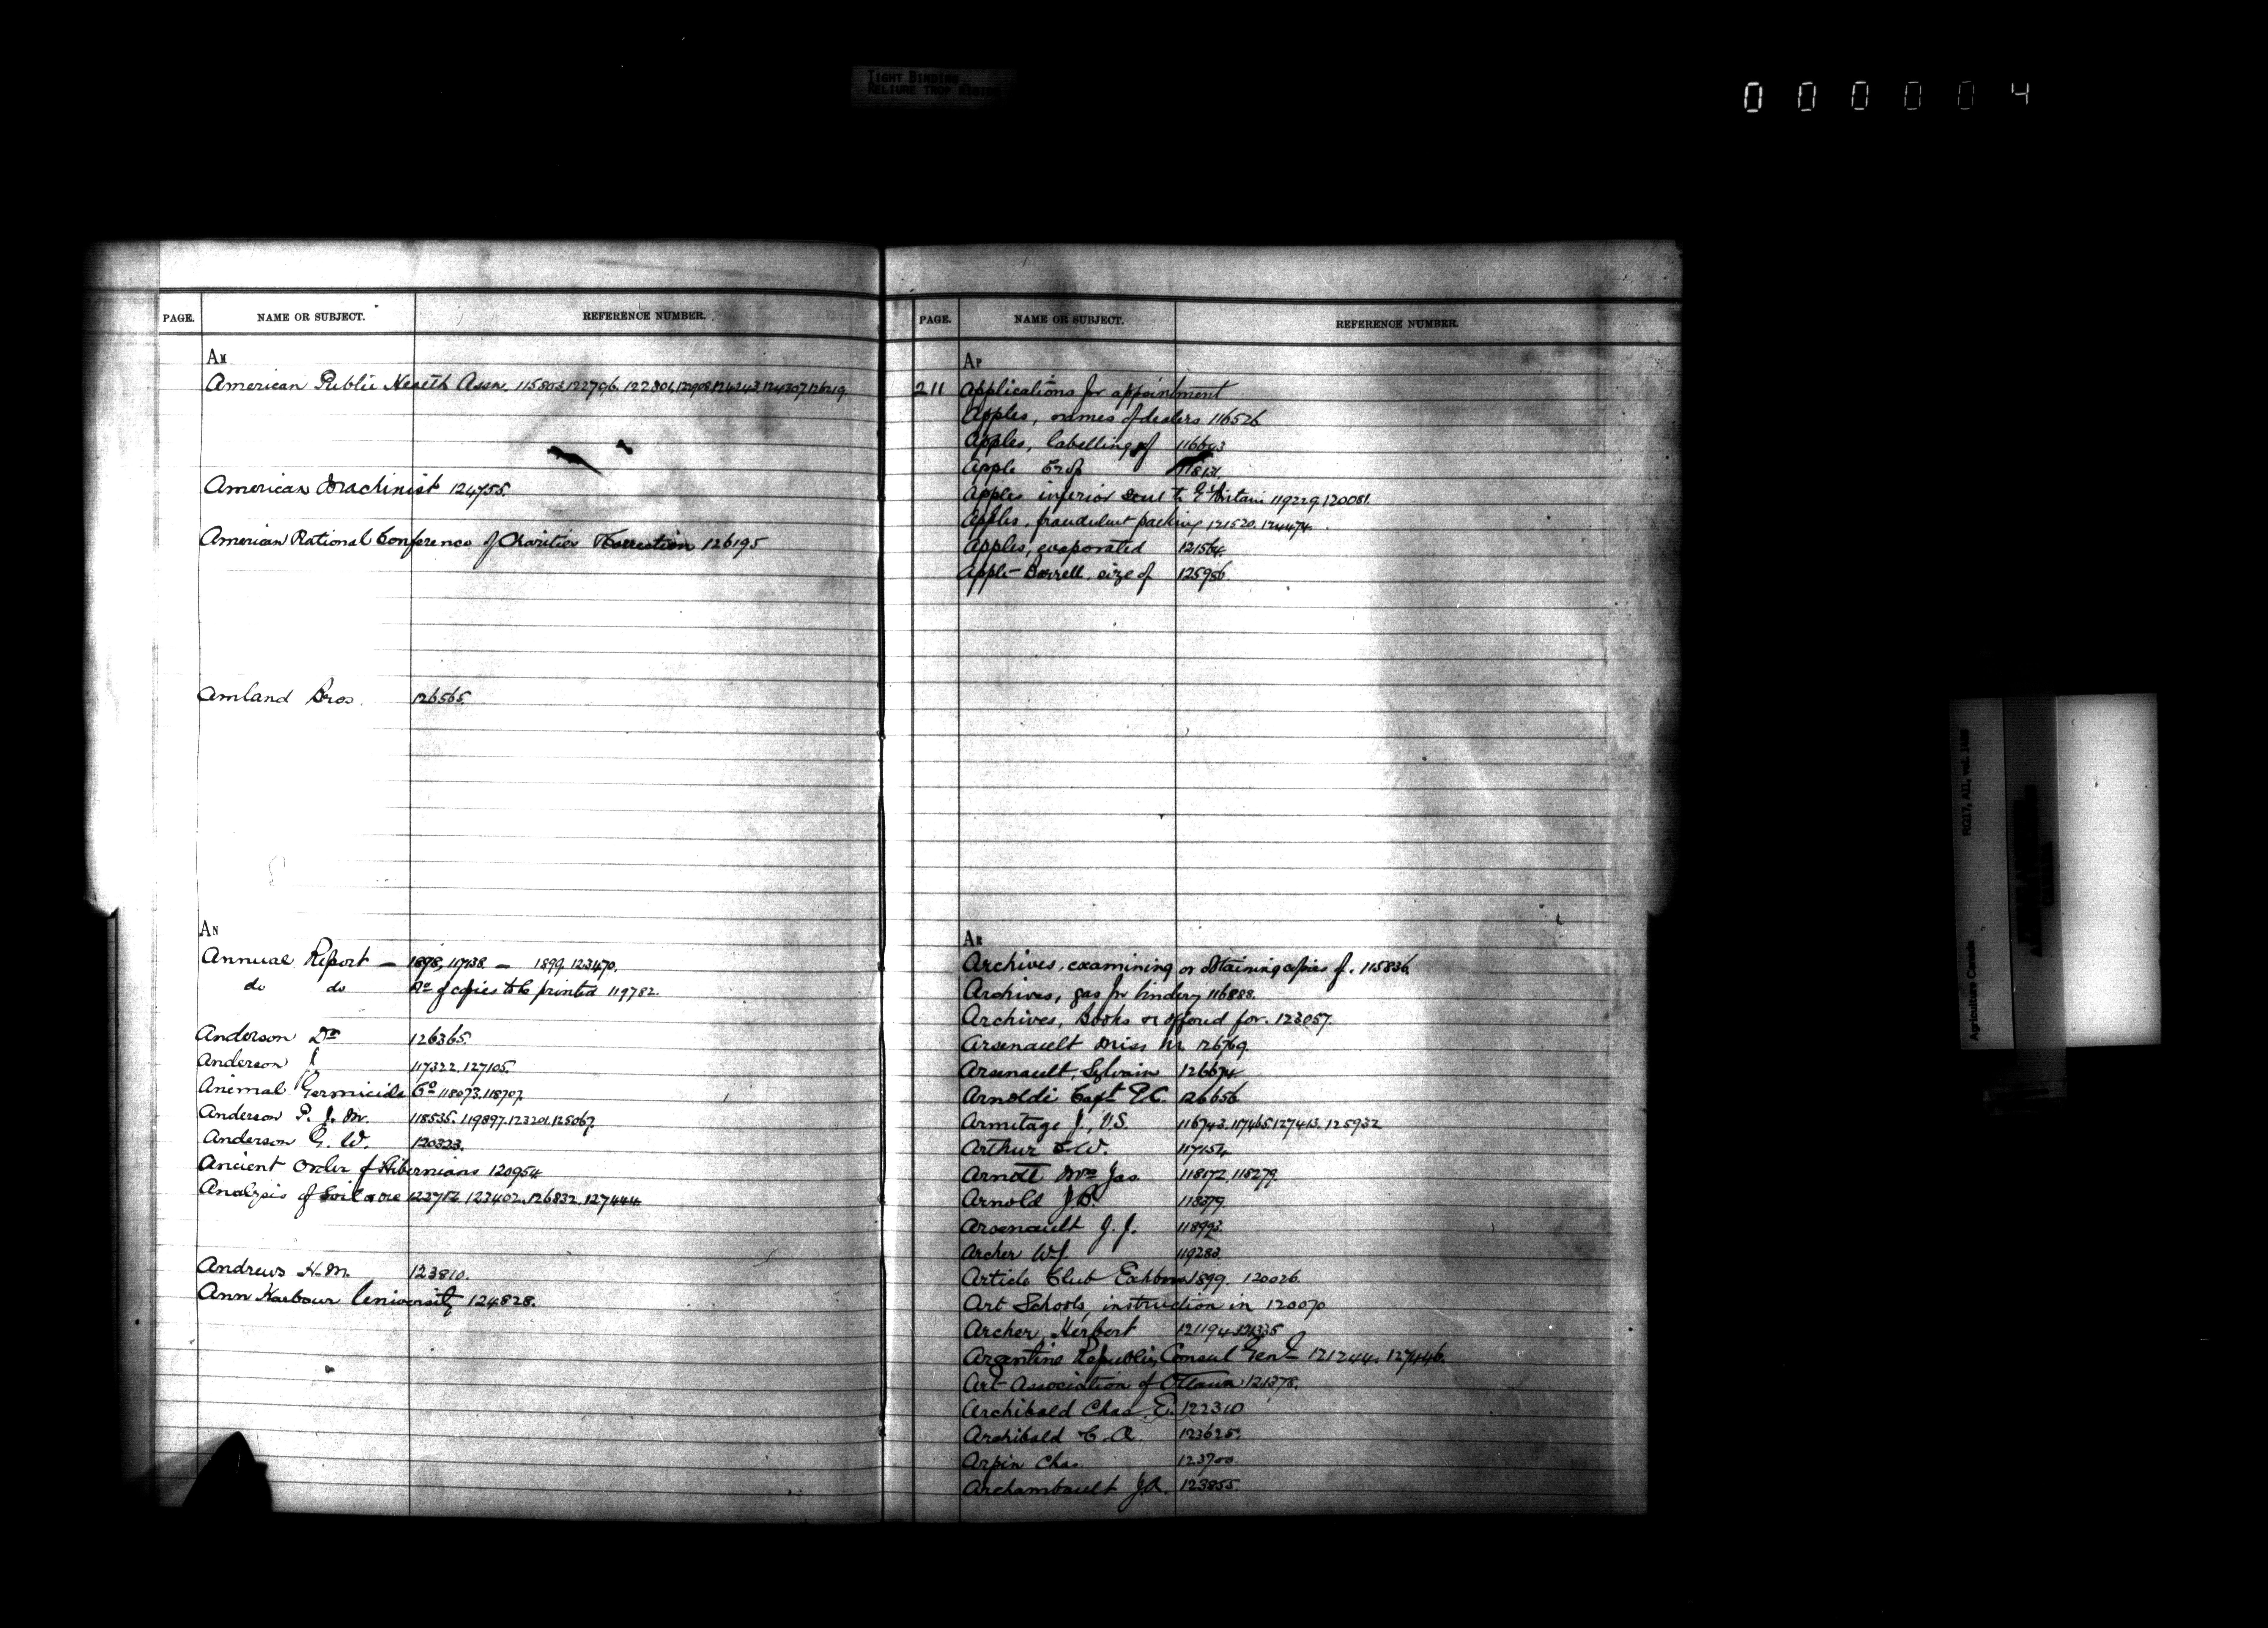 TIGHT BINDING
RELIURE TROP RIGIDE
000004
PAGE. NAME OR SUBJECT. REFERENCE NUMBER.
AM
American Public Health Assn. 115803, 122796.
American Machinist 124755.
American National Conference of Charities & Correction 126195
Amland Bros. 126565.
AN
Annual Report — 1898, 117138 — 1899 123470.
do do No of copies to be printed 119782.
Anderson Dr 126365.
Anderson J 117322. 127105.
Animal Germicide Co 118073. 118707
Anderson P. J. M. 118535. 119897. 123201. 125067.
Anderson G. W. 120323.
Ancient Order of Hibernians 120954
Analysis of Soil & ore 123402. 126832. 127444
Andrews H. M. 123810.
Ann Harbour University 124828.
PAGE. NAME OR SUBJECT. REFERENCE NUMBER.
AP
211 Applications for appointment
Apples, names of dealers 116526
Apples, labelling of 116643
Apple Crop 118131.
Apples inferior sent to Gt Britain 119229, 120081.
Apples, fraudulent packing 121520. 124474.
Apples, evaporated 121564.
Apple-Barrell, size of 125956.
AR
Archives, examining or obtaining copies of. 115836
Archives, gas for bindery 116888.
Archives, Books &c offered for. 123057.
Arsenault Miss M. 126769.
Arsenault, Sylvain 126674
Arnoldi Capt. E.C. 126656
Armitage J., V.S. 116743. 117465. 127413. 125932
Arthur E. W. 117154
Arndt Mrs Jas. 118172, 118279.
Arnold J.B. 118379.
Arsenault J. J. 118993.
Archer W.J. 119283.
Article Club Exhbn 1899. 120026.
Art Schools, instruction in 120070
Archer Herbert 121194. 121335
Argentine Republic, Consul Genl 121244. 127446.
Art Association of Ottawa 121378.
Archibald Chas. E. 122310
Archibald C. A. 123625.
Arpin Chas. 123700.
Archambault J.A. 123855.
Agriculture Canada RG17, AII, vol.